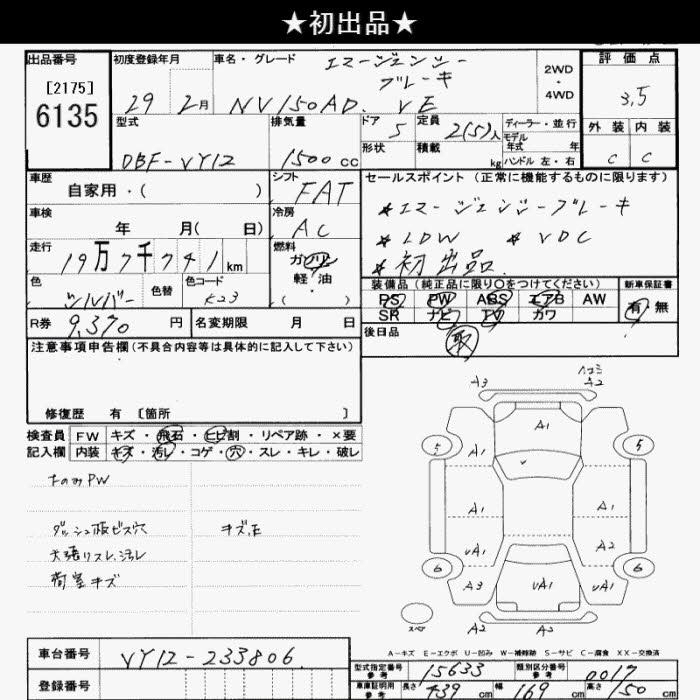 ★初出品★
出品番号 初度登録年月 車名・グレード エマージェンシーブレーキ 2WD・4WD 評価点
[2175]
6135 29 2月 NV150AD VE 3.5
型式 排気量 ドア 5 定員 2(5)人 ディーラー・並行 外装 内装
DBF-VY12 1500 cc 形状 積載 kg モデル年式 年 C C
ハンドル 左・右
車歴 シフト FAT セールスポイント (正常に機能するものに限ります)
自家用・( )
車検 冷房 AC ★エマージェンシーブレーキ
年 月( 日) ★LDW ★VDC
走行 19万7千741km 燃料 ガソリン ★初出品
色 シルバー 色替 色コード K23 軽・油 ( )
装備品 (純正品に限り○をつけてください) 新車保証書
PS PW ABS エアB AW 有 無
R券 9,370 円 名変期限 月 日 SR ナビ TV カワ
後日品 取
注意事項申告欄(不具合内容等は具体的に記入して下さい)
修復歴 有 [箇所 ]
検査員 FW キズ・飛石・ヒビ割・リペア跡・×要
記入欄 内装 キズ・汚レ・コゲ・穴・スレ・キレ・破レ
PW
ダッシュ板ビス穴 キズ正
天張リスレ、汚レ
荷室キズ
A3 ハコミ A2
A1
5 5
A1 A1
UA1 A2
6 6
A3 UA1 UA1
スペア A2 A3
A-キズ E-エクボ U-凹み W-補修跡 S-サビ C-腐食 XX-交換済
車台番号 VY12-233806
型式指定番号 参考 15633 類別区分番号 参考 0017
登録番号 車庫証明用 参考 長さ 439 cm 幅 169 cm 高さ 150 cm